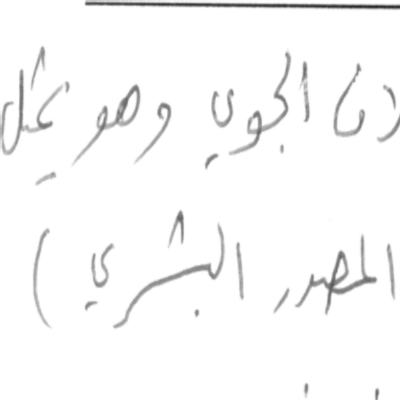 الجوي وهو يمثل
المصدر البشري )